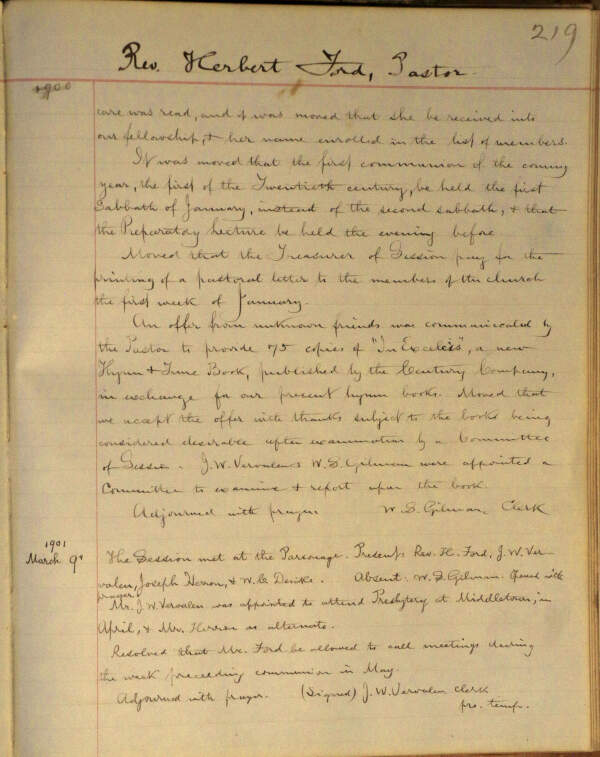 219
Rev. Herbert Ford, Pastor.
1900
care was read, and it was moved that she be received into
our fellowship, & her name enrolled in the list of members.
It was moved that the first communion of the coming
year, the first of the Twentieth century, be held the first
Sabbath of January, instead of the second sabbath, & that
the Preparatory Lecture be held the evening before
Moved that the Treasurer of Session pay for the
printing of a pastoral letter to the members of the church
the first week of January.
An offer from unknown friends was communicated by
the Pastor to provide 75 copies of "In Excelcis", a new
Hymn & Tune Book, published by the Century Company,
in exchange for our present hymn books. Moved that
we accept the offer with thanks subject to the books being
considered desirable after examination by a Committee
of Session. J. W. Vervalen & W. S. Gilman were appointed a
Committee to examine & report upon the book.
Adjourned with prayer W. S. Gilman, Clerk
1901
March 9th The Session met at the Parsonage. Present, Rev. H. Ford, J. W. Ver
valen, Joseph Herron, & W. C. Opened with
prayer. Absent. W. S. Gilman.
Mr. J. W. Vervalen was appointed to attend Presbytery at Middletown, in
April, & Mr. Herron as alternate.
Resolved that Mr. Ford be allowed to call meetings during
the week preceeding communion in May.
Adjourned with prayer. (Signed) J. W. Vervalen Clerk
pro. temp.